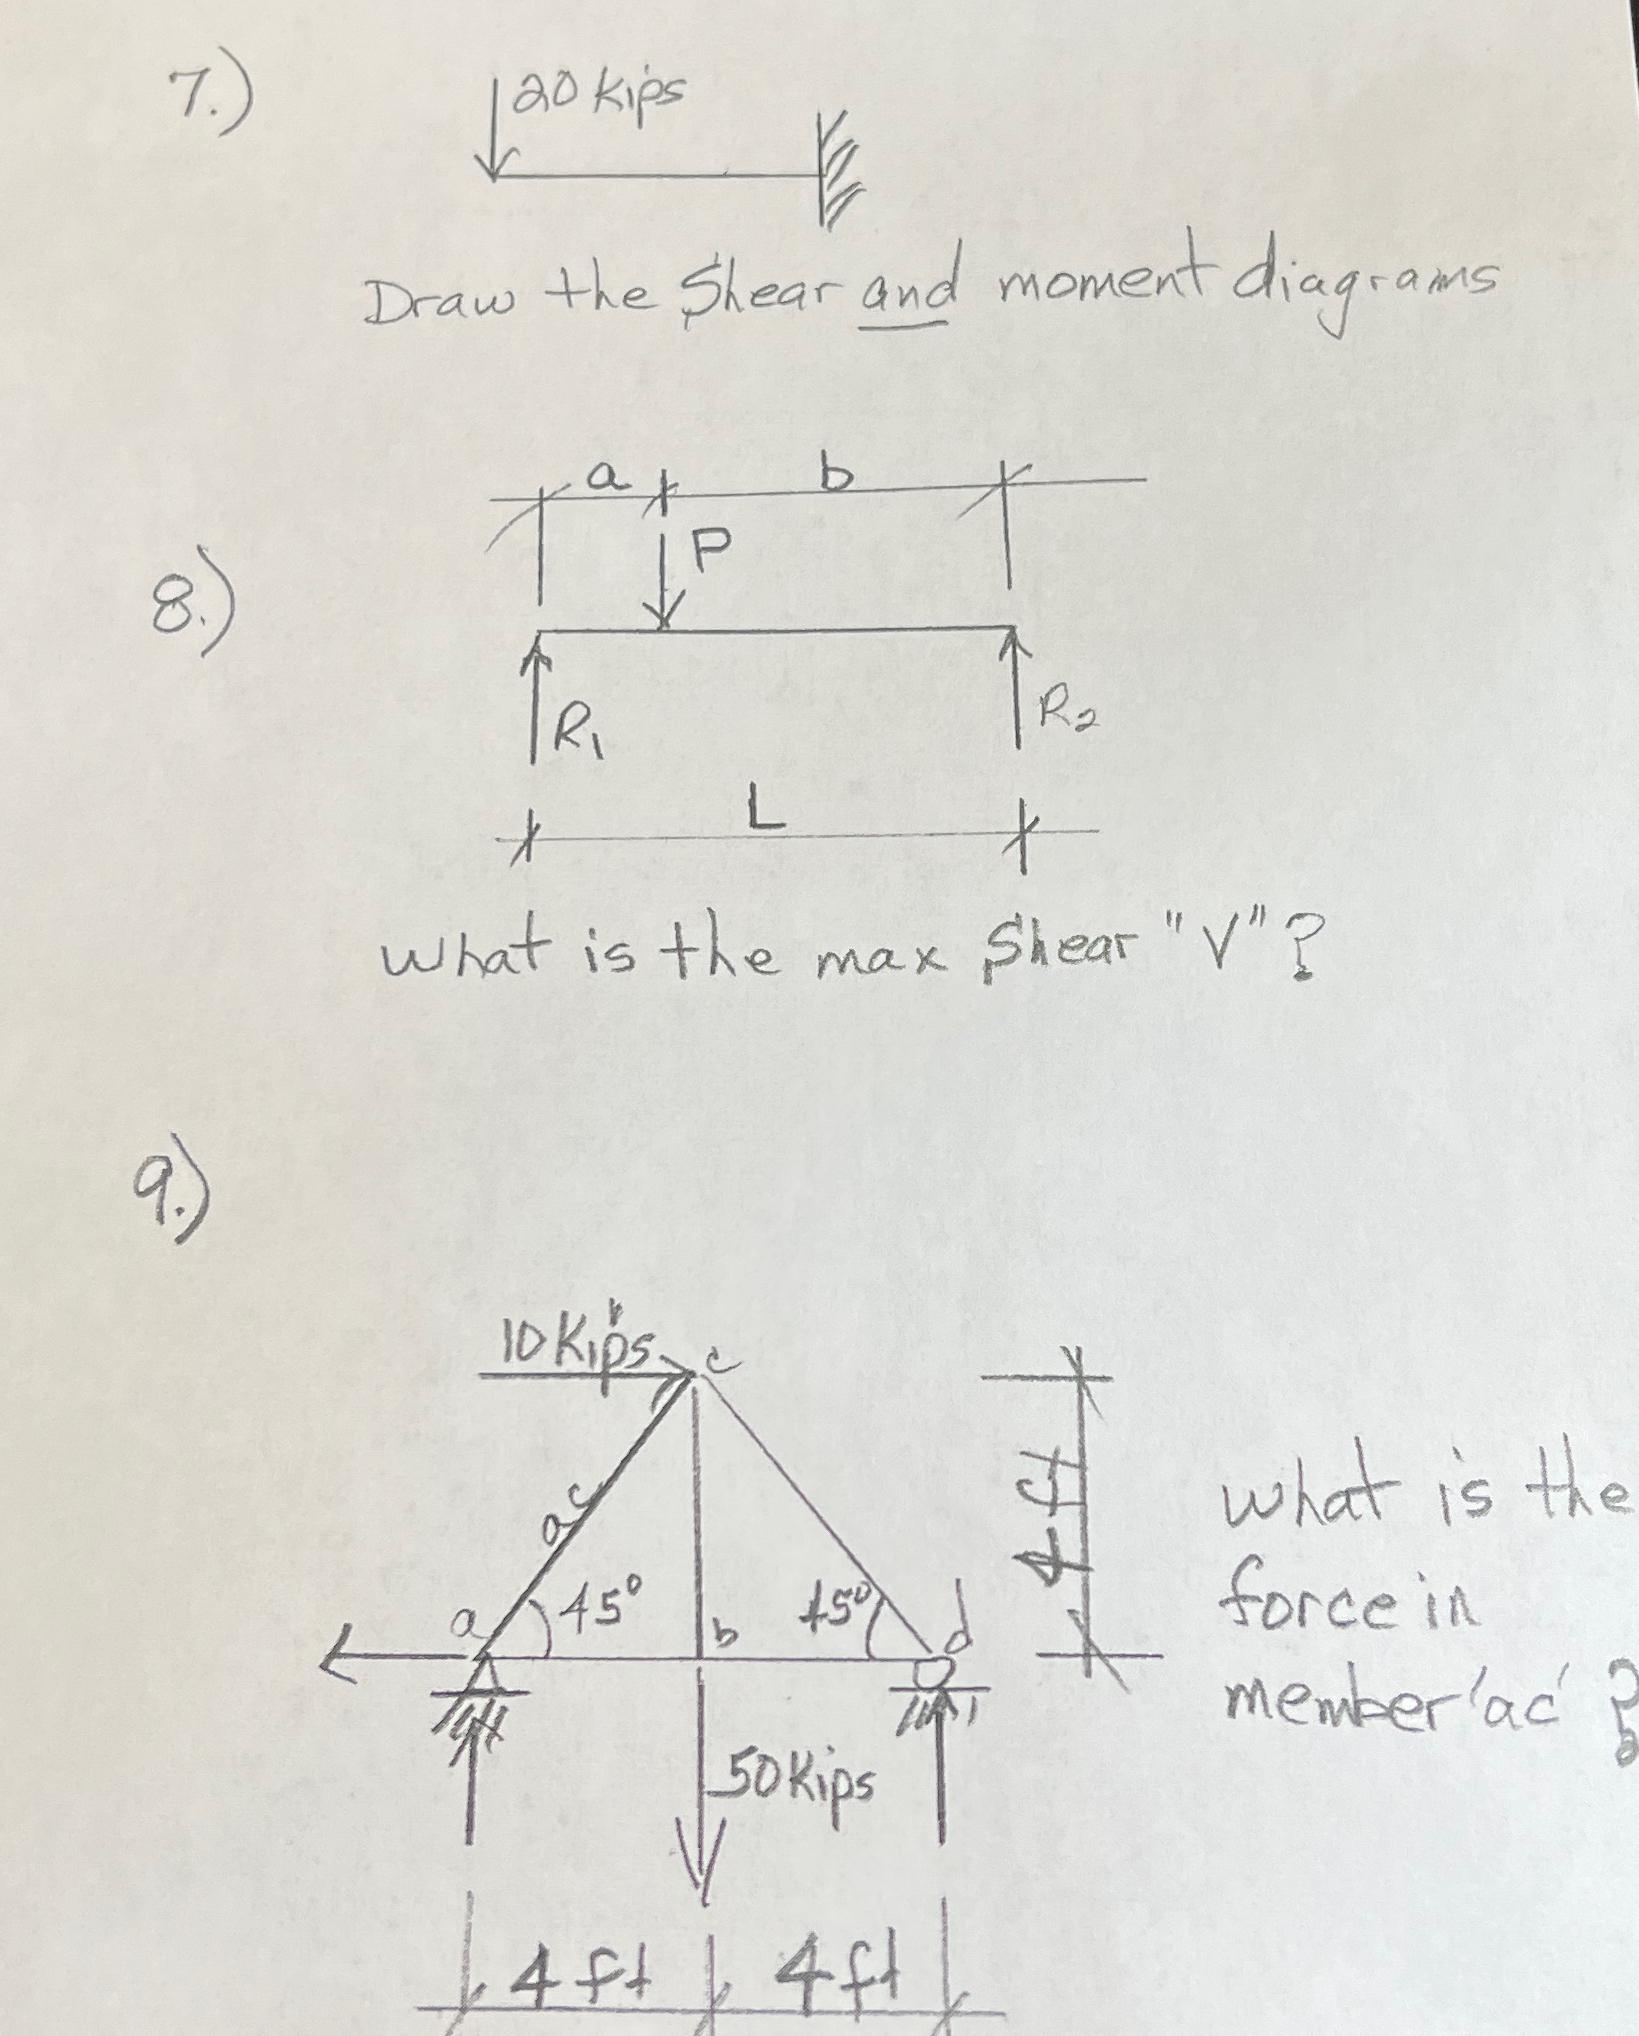 7.)
20 kips
Draw the Shear and moment diagrams
a
b
P
8.)
R₁
R₂
L
what is the max Shear "V"?
9.)
10 Kips
c
ac
4 ft
what is the
force in
member 'ac' ?
a
45°
b
45°
d
50 Kips
4 ft
4 ft